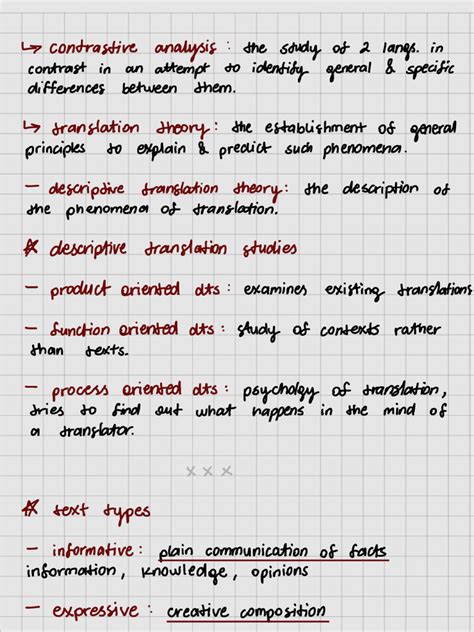 ↳ contrastive analysis : the study of 2 langs. in
contrast in an attempt to identify general & specific
differences between them.
↳ translation theory : the establishment of general
principles to explain & predict such phenomena.
— descriptive translation theory : the description of
the phenomena of translation.
* descriptive translation studies
— product oriented dts : examines existing translations
— function oriented dts : study of contexts rather
than texts.
— process oriented dts : psycholgy of translation,
tries to find out what happens in the mind of
a translator.
x x x
* text types
— informative : plain communication of facts
information, knowledge, opinions
— expressive : creative composition